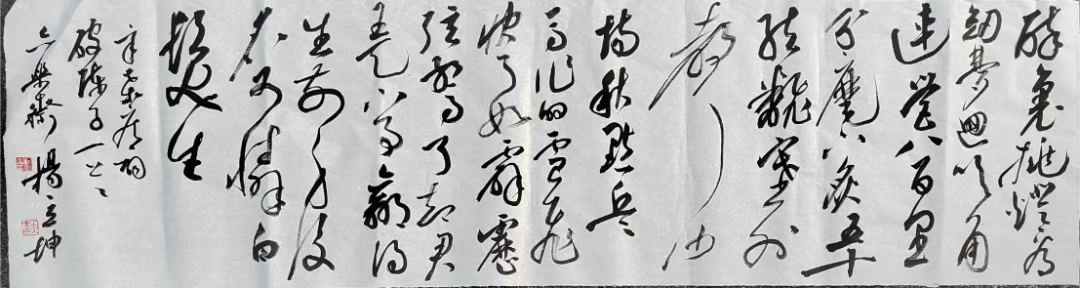 醉裏挑燈看
劍夢迴吹角
連營八百里
分麾下炙五十
弦翻塞外
聲沙
場秋點兵
馬作的盧飛
快弓如霹靂
弦驚了却君
王天下事贏得
生前身後
名可憐白
髮生
辛棄疾詞
破陣子一
楊立坤